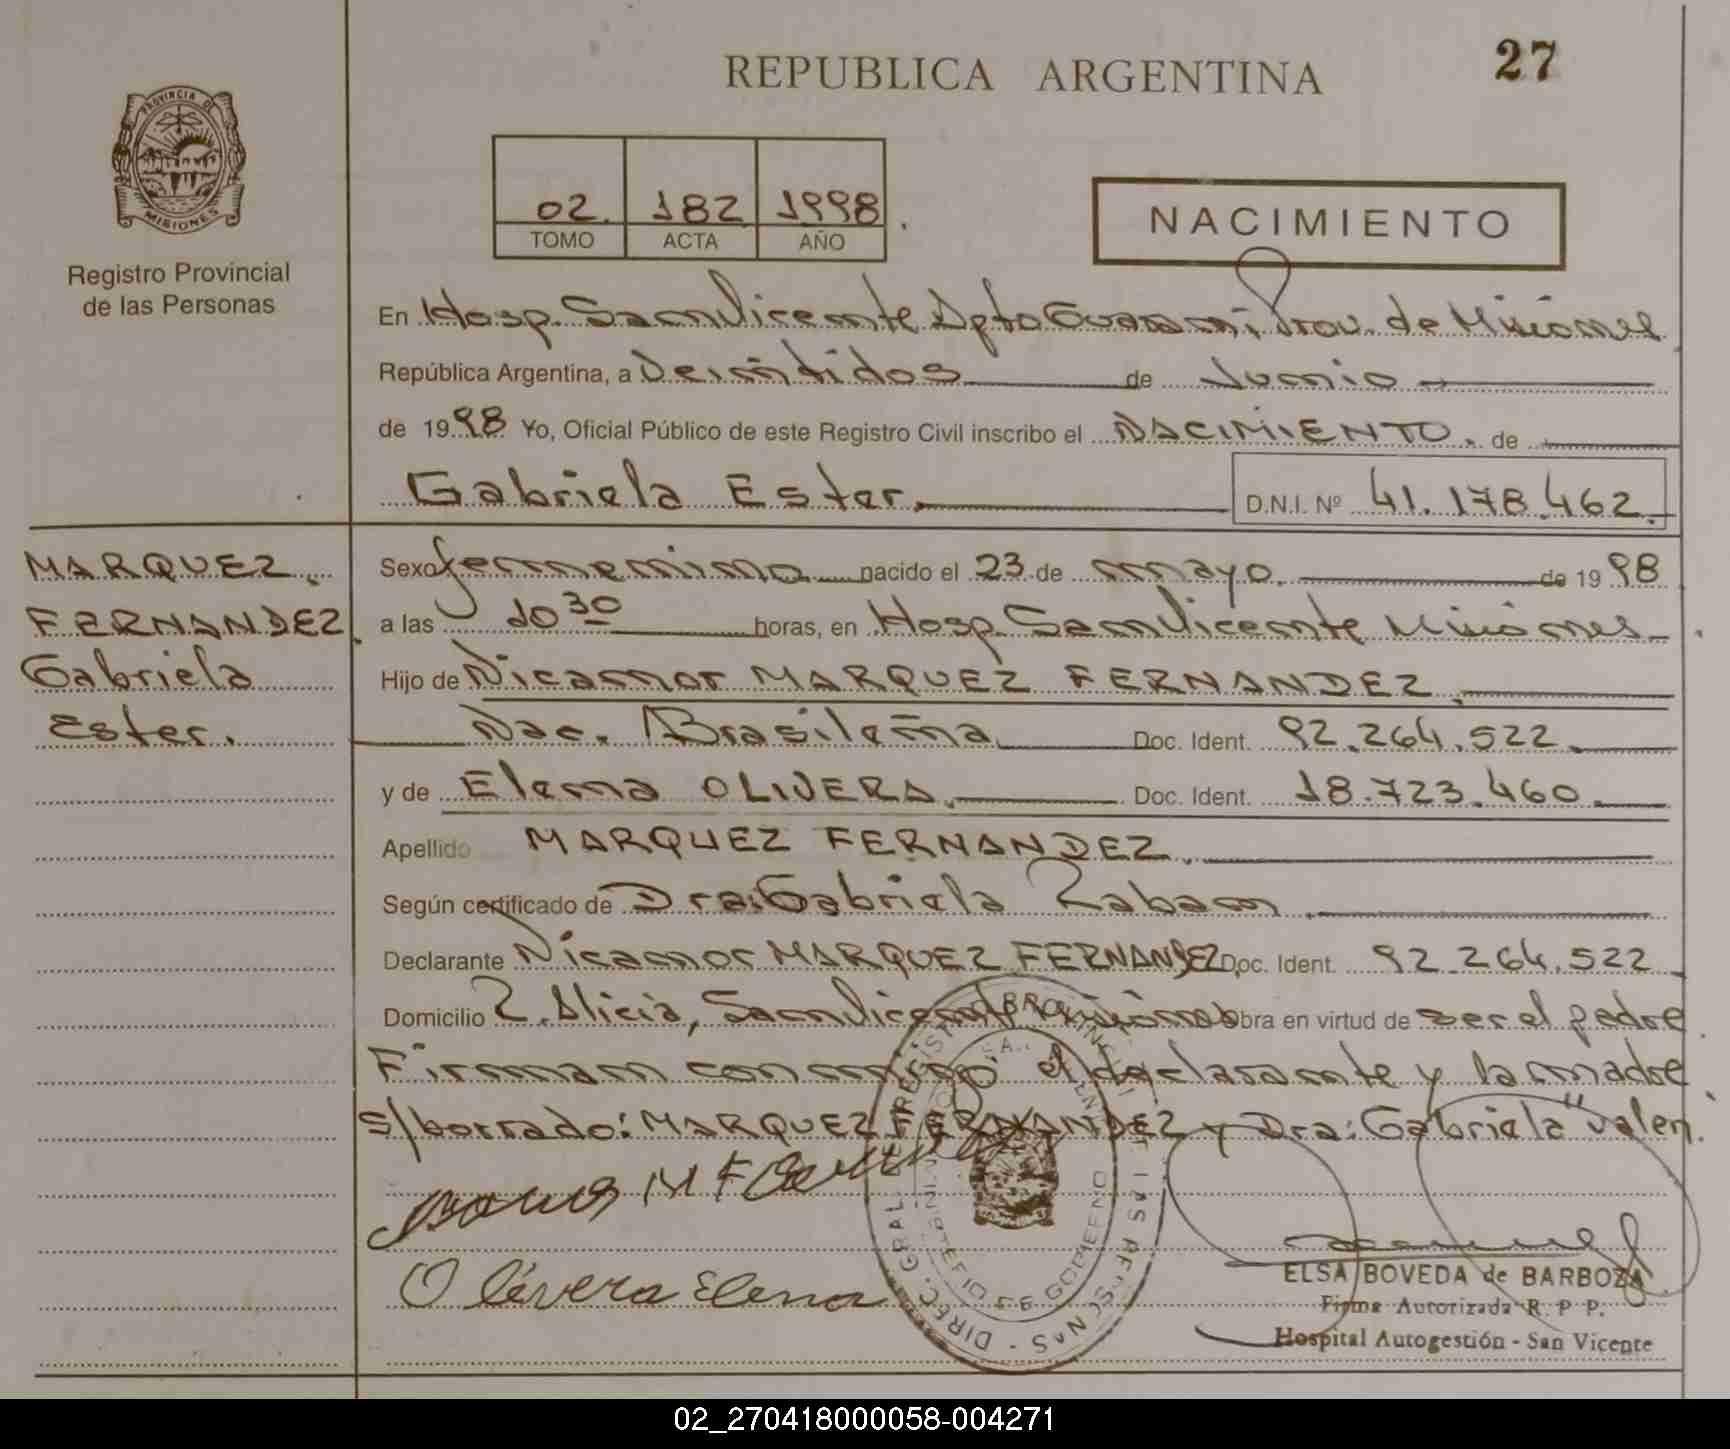 27
REPUBLICA ARGENTINA
PROVINCIA DE
MISIONES
Registro Provincial
de las Personas
02. 182 1998
TOMO ACTA AÑO
NACIMIENTO
En Hosp. San Vicente Dpto Guarani, Prov. de Misiones
República Argentina, a Veintidos de Junio
de 1998 Yo, Oficial Público de este Registro Civil inscribo el NACIMIENTO. de
Gabriela Ester. D.N.I. Nº 41.178.462.
MARQUEZ
FERNANDEZ
Gabriela
Ester.
Sexo femenino nacido el 23 de mayo de 1998
a las 10 30 horas, en Hosp. San Vicente Misiones
Hijo de Nicanor MARQUEZ FERNANDEZ
Nac. Brasileña Doc. Ident. 92.264.522.
y de Elena OLIVERA. Doc. Ident. 18.723.460.
Apellido MARQUEZ FERNANDEZ.
Según certificado de Dra: Gabriela Zaban
Declarante Nicanor MARQUEZ FERNANDEZ Doc. Ident. 92.264.522
Domicilio 2. Alicia, San Vicente Misiones Obra en virtud de ser el padre
Firman conmigo el declarante y la madre
S/borrado: MARQUEZ FERNANDEZ y Dra: Gabriela" Valen.
Olivera Elena
ELSA BOVEDA de BARBOZA
Firma Autorizada R. P. P.
Hospital Autogestión - San Vicente
02_270418000058-004271